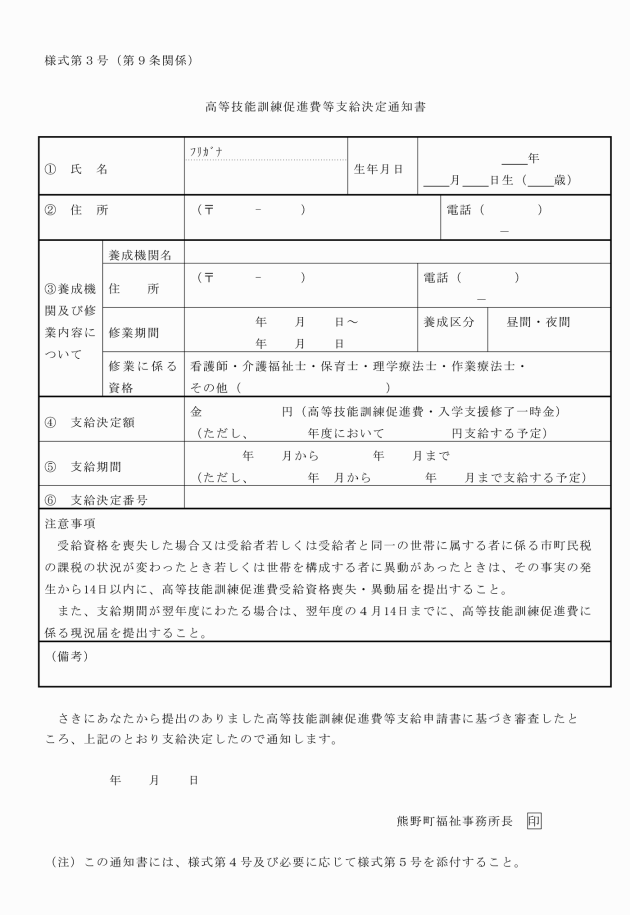 様式第３号（第９条関係）
高等技能訓練促進費等支給決定通知書
① 氏　名
ﾌﾘｶﾞﾅ
生年月日
年
月　日生（　歳）
② 住　所
（〒　　－　　）
電話（　　　）
－
③養成機関及び修業内容について
養成機関名
住　　所
（〒　　－　　）
電話（　　　）
－
修業期間
年　　月　　日～
年　　月　　日
養成区分
昼間・夜間
修業に係る資格
看護師・介護福祉士・保育士・理学療法士・作業療法士・
その他（　　　　　　　　　　）
④ 支給決定額
金　　　　　　円（高等技能訓練促進費・入学支援修了一時金）
（ただし、　　　　年度において　　　　　円支給する予定）
⑤ 支給期間
年　　月から　　　　年　　月まで
（ただし、　　　　年　月から　　　　年　　月まで支給する予定）
⑥ 支給決定番号
注意事項
受給資格を喪失した場合又は受給者若しくは受給者と同一の世帯に属する者に係る市町民税
の課税の状況が変わったとき若しくは世帯を構成する者に異動があったときは、その事実の発
生から14日以内に、高等技能訓練促進費受給資格喪失・異動届を提出すること。
また、支給期間が翌年度にわたる場合は、翌年度の４月14日までに、高等技能訓練促進費に
係る現況届を提出すること。
（備考）
さきにあなたから提出のありました高等技能訓練促進費等支給申請書に基づき審査したと
ころ、上記のとおり支給決定したので通知します。
年　　月　　日
熊野町福祉事務所長　印
（注）この通知書には、様式第４号及び必要に応じて様式第５号を添付すること。